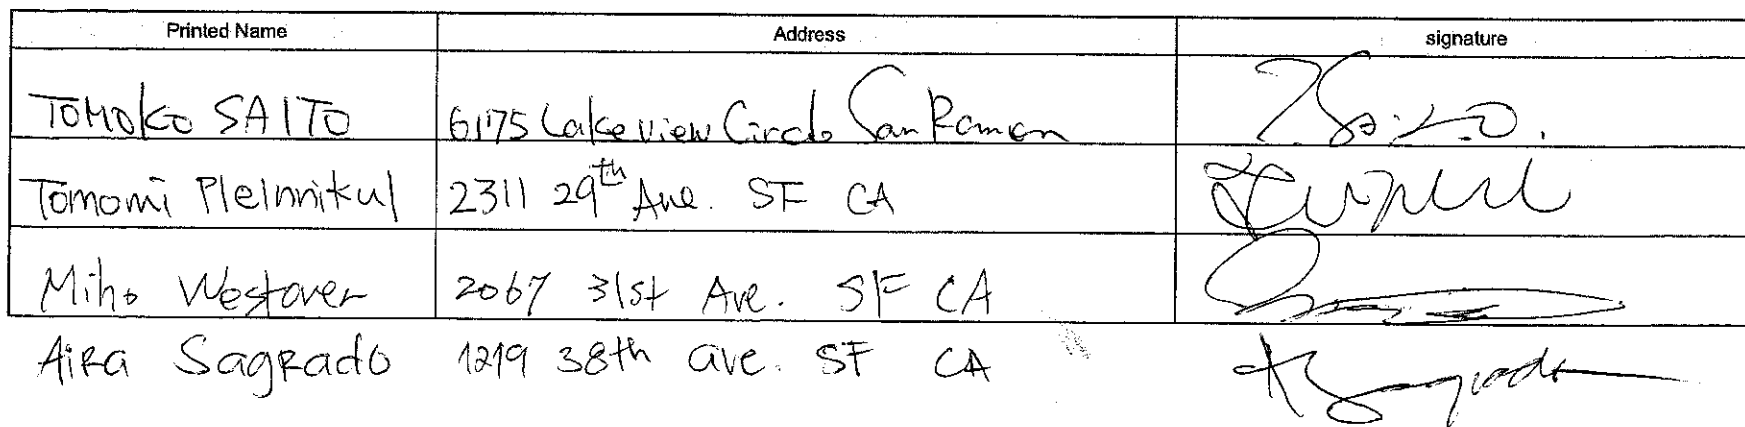 Printed Name Address signature
TOMOKO SAITO 6175 Lakeview Circle San Ramon T. Saito.
Tomomi Pleinnikul 2311 29th Ave. SF CA
Miho Westover 2067 31st Ave. SF CA
Aira Sagrado 1219 38th ave. SF CA A Sagrado